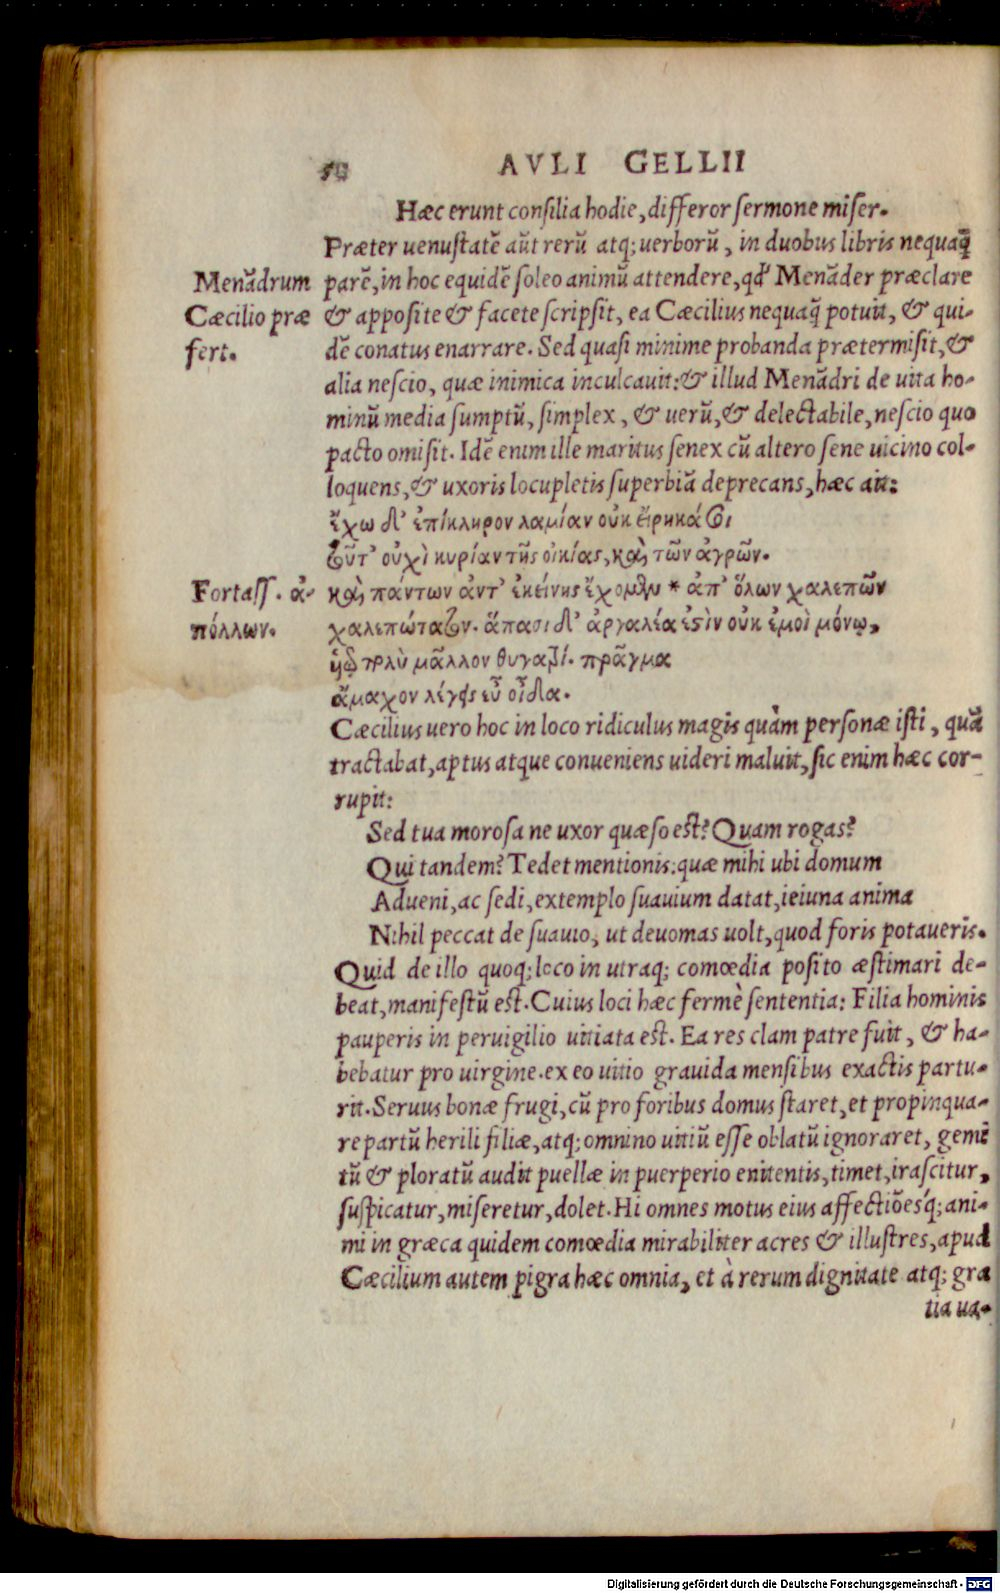 AVLI GELLII
Hæc erunt consilia hodie, differor sermone miser.
Præter uenustatē aūt rerū atq; uerborū, in duobus libris nequaq̄
Menādrum
Cæcilio præ
fert.
parē, in hoc equidē soleo animū attendere, qđ Menāder præclare
& apposite & facete scripsit, ea Cæcilius nequaq̄ potuit, & qui-
dē conatus enarrare. Sed quasi minime probanda prætermisit, &
alia nescio, quæ inimica inculcauit: & illud Menādri de uita ho-
minū media sumptū, simplex, & uerū, & delectabile, nescio quo
pacto omisit. Idē enim ille maritus senex cū altero sene uicino col-
loquens, & uxoris locupletis superbiā deprecans, hæc ait:
ἔχω δ' ἐπίκληρον λαμίαν οὐκ εἴρηκά σοι
τοῦτ' οὐχὶ κυρίαν τῆς οἰκίας, καὶ τῶν ἀγρῶν.
Fortass. ἀ-
πόλλων.
καὶ πάντων ἀντ' ἐκείνης ἔχομεν * ἀπ' ὅλων χαλεπῶν
χαλεπώτατον. ἅπασι δ' ἀργαλέα ἐστὶν οὐκ ἐμοὶ μόνῳ,
μᾶλλον θυγατρί. πρᾶγμα
ἄμαχον λέγεις εὖ οἶδα.
Cæcilius uero hoc in loco ridiculus magis quàm personæ isti, quā
tractabat, aptus atque conueniens uideri maluit, sic enim hæc cor-
rupit:
Sed tua morosa ne uxor quæso est? Quam rogas?
Qui tandem? Tedet mentionis: quæ mihi ubi domum
Adueni, ac sedi, extemplo suauium datat, ieiuna anima
Nihil peccat de suauio, ut deuomas uolt, quod foris potaueris.
Quid de illo quoq; loco in utraq; comœdia posito æstimari de-
beat, manifestū est. Cuius loci hæc fermè sententia: Filia hominis
pauperis in peruigilio uitiata est. Ea res clam patre fuit, & ha-
bebatur pro uirgine. ex eo uitio grauida mensibus exactis partu-
rit. Seruus bonæ frugi, cū pro foribus domus staret, et propinqua-
re partū herili filiæ, atq; omnino uitiū esse oblatū ignoraret, gemi
tū & ploratū audit puellæ in puerperio enitentis, timet, irascitur,
suspicatur, miseretur, dolet. Hi omnes motus eius affectiōesq́; ani-
mi in græca quidem comœdia mirabiliter acres & illustres, apud
Cæcilium autem pigra hæc omnia, et à rerum dignitate atq; gra
tia ua-
Digitalisierung gefördert durch die Deutsche Forschungsgemeinschaft - DFG